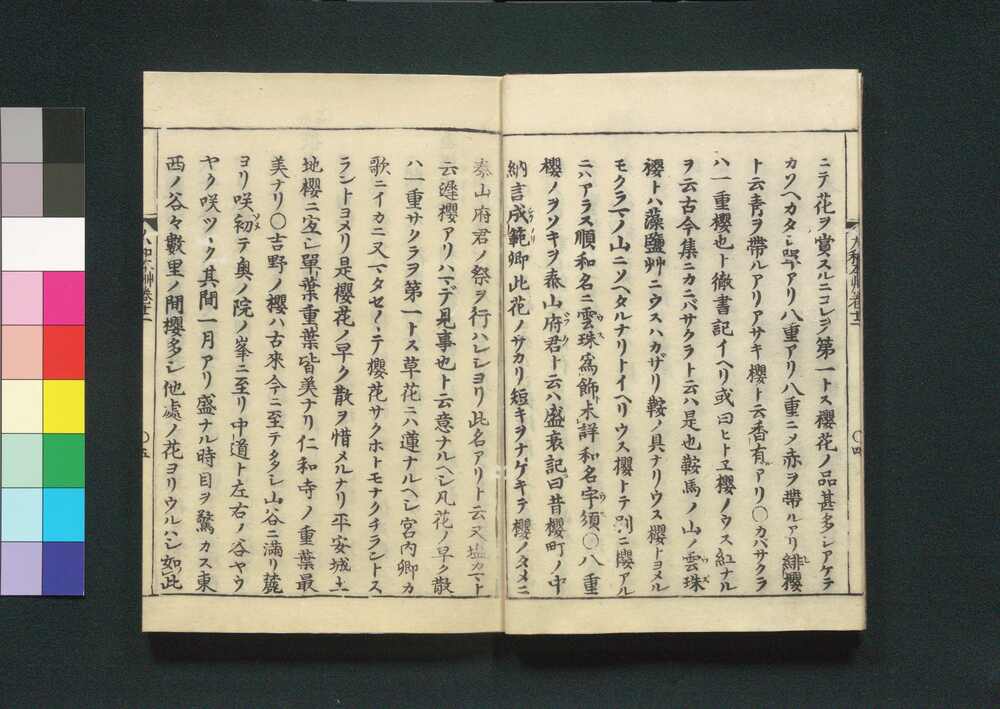 ニテ花ヲ賞スルニコレヲ第一トス櫻花ノ品甚多シアケテ
カソヘカタシ單アリ八重アリ八重ニメ赤ヲ帶ルアリ緋櫻
ト云青ヲ帶ルアリアサキ櫻ト云香有アリ〇カバサクラ
ハ一重櫻也ト徹書記イヘリ或曰ヒトヱ櫻ノウス紅ナル
ヲ云古今集ニカニバサクラト云ハ是也鞍馬ノ山ノ雲珠
櫻トハ藻鹽艸ニウスハカザリ鞍ノ具ナリウス櫻トヨメル
モクラマノ山ニソヘタルナリトイヘリウス櫻トテ別ニ櫻アル
ニハアラス順和名ニ雲珠爲飾未詳和名宇須〇八重
櫻ノヲソキヲ泰山府君ト云ハ盛衰記曰昔櫻町ノ中
納言成範卿此花ノサカリ短キヲナゲキテ櫻ノタメニ
泰山府君ノ祭ヲ行ハレシヨリ此名アリト云又塩カマト
云遲櫻アリハマデ見事也ト云意ナルヘシ凡花ノ早ク散
ハ一重サクラヲ第一トス草花ニハ蓮ナルヘシ宮内卿カ
歌ニイカニ又マタセ〱テ櫻花サクホトモナクチラントス
ラントヨメリ是櫻花ノ早ク散ヲ惜メルナリ平安城土
地櫻ニ宜シ單葉重葉皆美ナリ仁和寺ノ重葉最
美ナリ〇吉野ノ櫻ハ古來今ニ至テタタシ山谷ニ滿リ麓
ヨリ咲初テ奥ノ院ノ峯ニ至リ中道ト左右ノ谷ヤウ
ヤク咲ツヽク其間一月アリ盛ナル時目ヲ驚カス東
西ノ谷々數里ノ間櫻多シ他處ノ花ヨリウルハシ如此